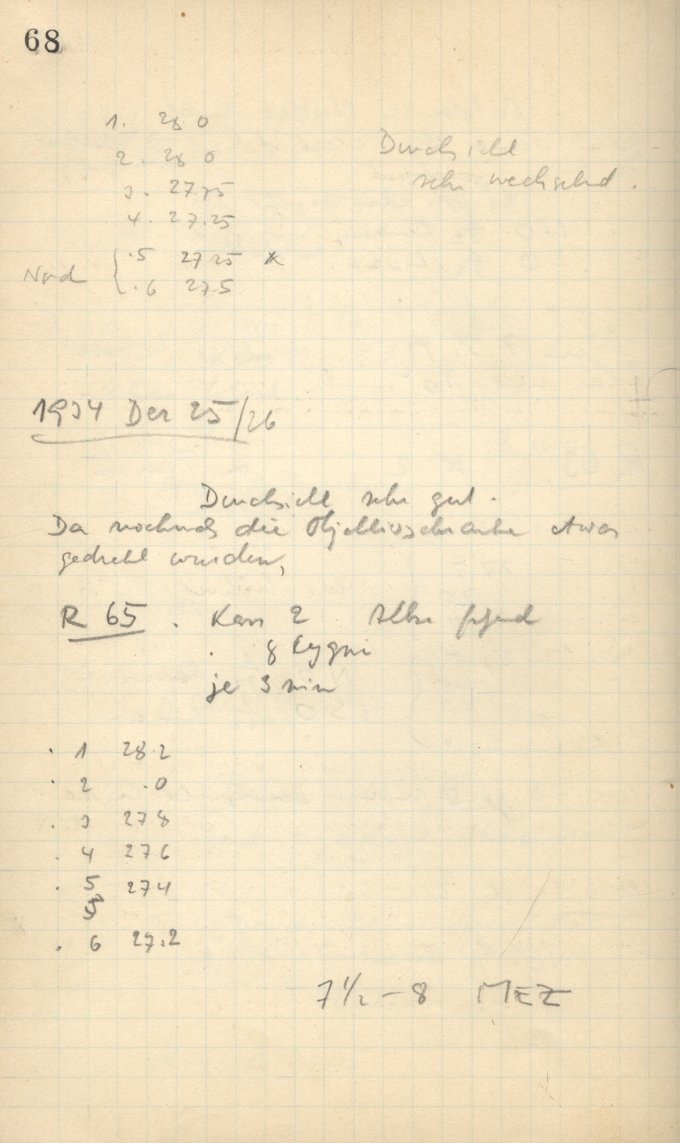 68
1. 28 0
2. 28 0
3. 27 75
4. 27.25
.5 27 25 x
Nord
.6 27.5
Durchsicht
sehr wechselnd.
1934 Dez 25/26
Durchsicht sehr gut.
Da nochmals die Objektivschraube etwas
gedreht wurden,
R 65. Kass 2 Selbe Gegend
γ Cygni
je 3 min
1 28.2
2 .0
3 27 8
4 27 6
5 27 4
5
6 27.2
7 1/2 – 8 MEZ